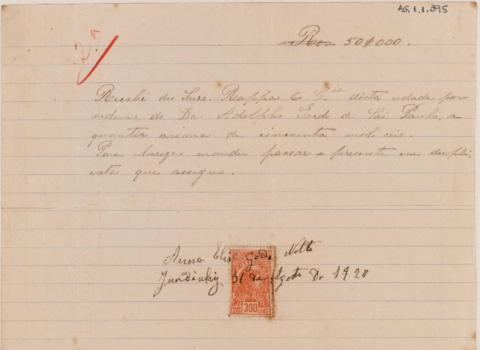 AG.1.1.395
2ª
Rs 50$000.
Recebi dos Snrs. Rappa & Cia desta cidade por
ordem do Dr. Adolpho de São Paulo, a
quantia acima de cincoenta mil reis.
Para clareza mandei passar o presente em dupli
cata que assigno.
Anna Netto
Jundiahy 31 de Agosto De 1920
300